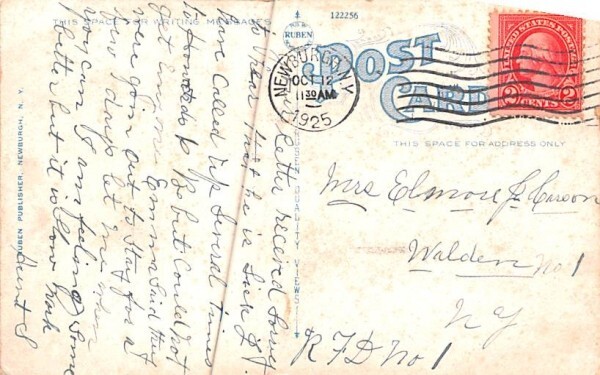 THIS SPACE FOR WRITING MESSAGES
122256
RUBEN
POST
CARD
NEWBURGH, N.Y.
OCT 12
11 30 AM
1925
UNITED STATES POSTAGE
2 CENTS 2
THIS SPACE FOR ADDRESS ONLY
RUBEN PUBLISHER, NEWBURGH, N. Y.
RUBEN QUALITY VIEWS
Letter received Sorry
to hear that he is Sick If
have Called up Several times
to Howards to Be but Could not
get anyone Emma Said they
were going out to Stay for a
few days let me when
you can I am feeling Some
better but it is slow work
Aunt S
Mrs Elmore J. Carson
Walden No 1
N Y
R F D No 1